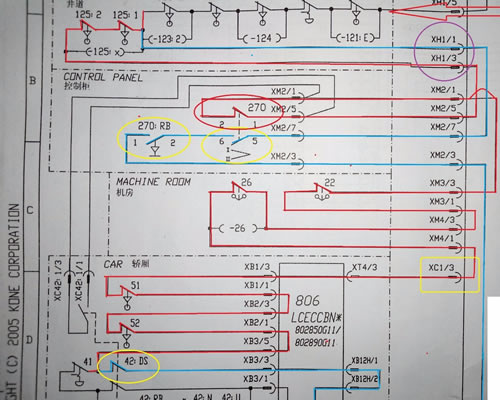 井道
125:2 125:1
XH1/5
(-125:x)
(-123:2)
(-124)
(-121:E)
XH1/1
XH1/3
B
CONTROL PANEL
控制柜
XM2/1
XM2/1
270
XM2/5
XM2/5
270:RB
2 1
XM2/7
XM2/7
1 2
6 5
I
II
XM2/3
XM2/3
MACHINE ROOM
机房
26
22
XM3/3
XM3/1
C
(-26)
XM4/3
XM4/1
CAR 轿厢
XB1/3
XT4/3
XC1/3
XC42:1/3
XC42:1/1
51
XB1/1
XB2/3
806
LCECCBN*
802850G11/
802890G11
52
XB2/1
XB3/5
D
41
42:DS
XB3/3
XB12H/1
XB3/1
XB12H/2
GHT (C) 2005 KONE CORPORATION